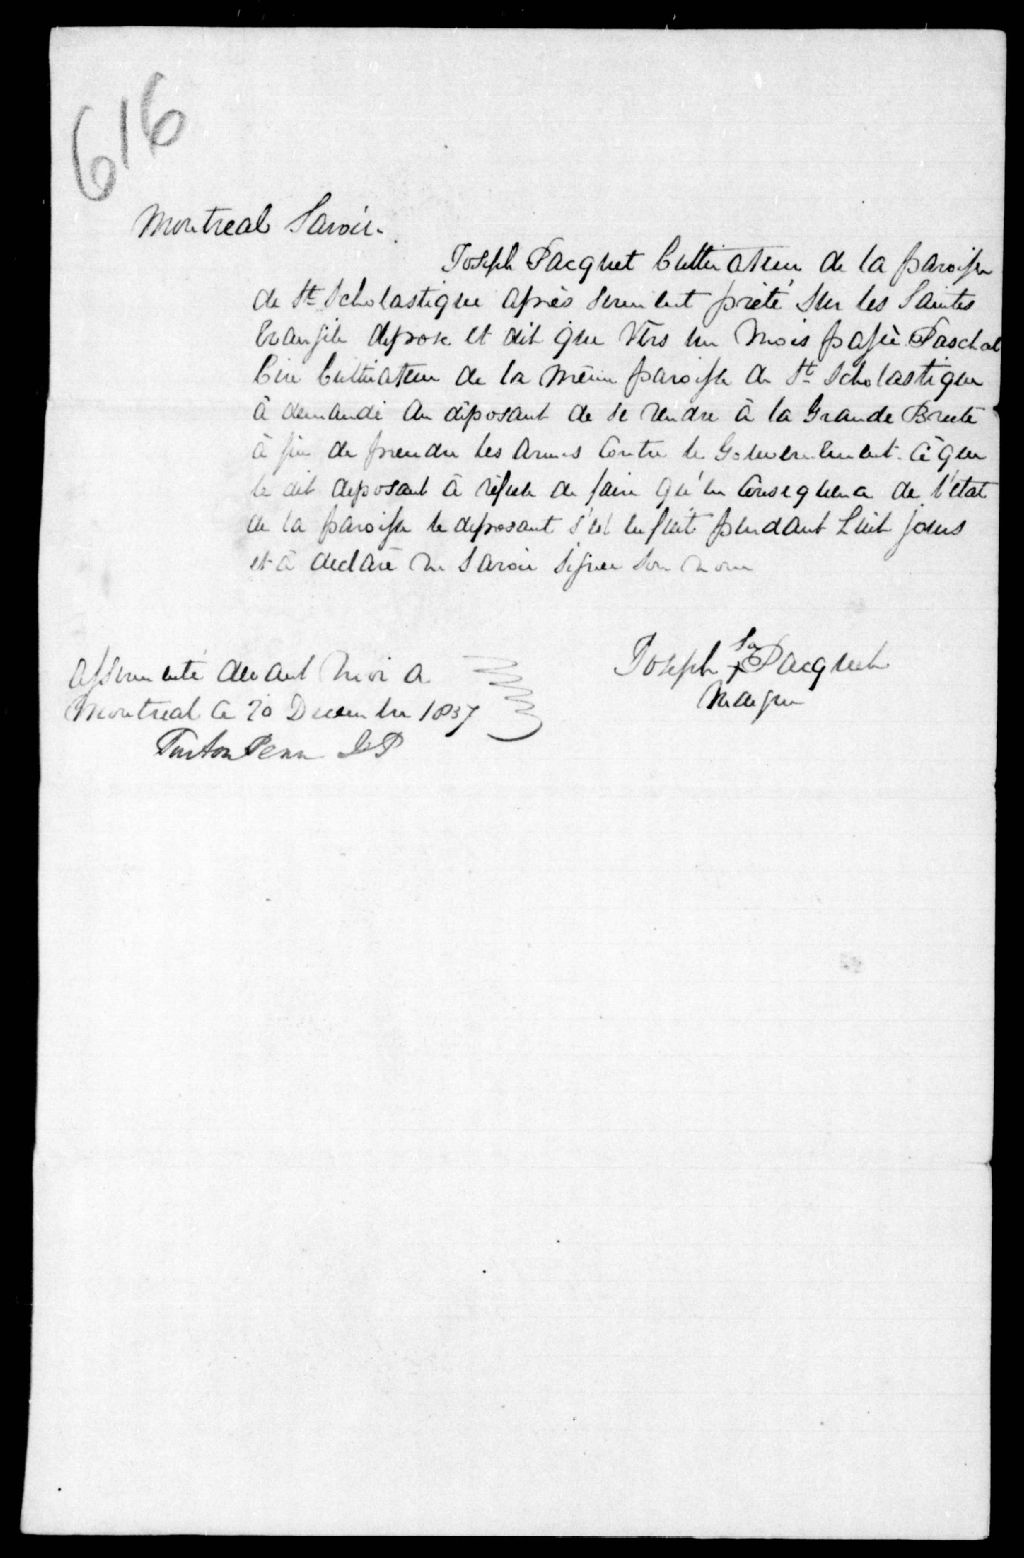 616
Montreal Savoir.
Joseph Pacquet Cultivateur de la paroisse
de St. Scholastique après serment prêté sur les Saintes
Evangile depose et dit que vers un mois passé Paschal
Cultivateur de la même paroisse de St. Scholastique
à demandé au déposant de se rendre à la Grande Brulé
à fin de prendre les armes contre le Gouvernement. Cê que
le dit deposant à réfusé de faire qu'en consequence de l'état
de la paroisse le deposant s'est enfuit pendant huit jours
et à declaré ne savoir signer son nom
Joseph Sa X Pacquet
Marque
Assermenté devant moi a
Montreal Ce 20 Decembre 1837
Turton Penn J.P